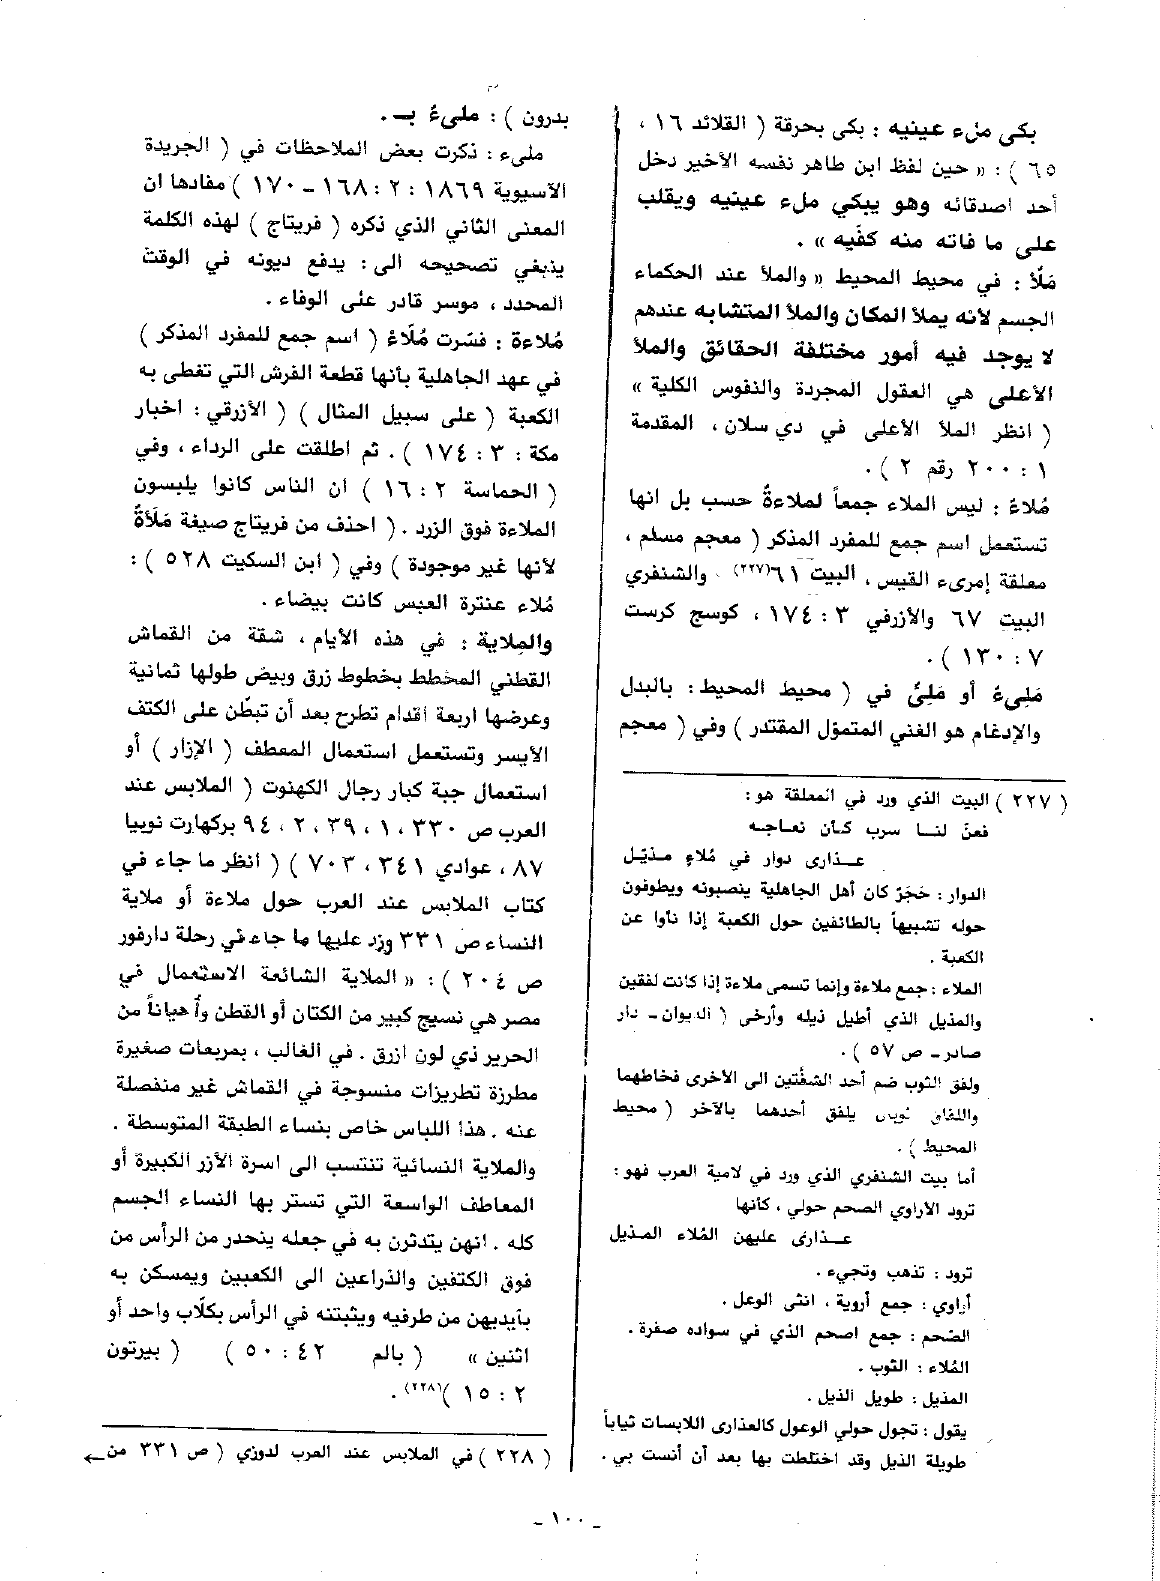 بكى ملء عينيه : بكى بحرقة ( القلائد ١٦ ،
٦٥ ) : « حين لفظ ابن طاهر نفسه الأخير دخل
أحد اصدقائه وهو يبكي ملء عينيه ويقلب
على ما فاته منه كفَّيه » .
مَلَأ : في محيط المحيط « والملأ عند الحكماء
الجسم لأنه يملأ المكان والملأ المتشابه عندهم
لا يوجد فيه أمور مختلفة الحقائق والملأ
الأعلى هي العقول المجردة والنفوس الكلية »
( انظر الملأ الأعلى في دي سلان ، المقدمة
١ : ٢٠٠ رقم ٢ ) .
مُلاءٌ : ليس الملاء جمعاً لملاءةٌ حسب بل انها
تستعمل اسم جمع للمفرد المذكر ( معجم مسلم ،
معلقة إمرىء القيس ، البيت ٦١(٢٢٧) ، والشنفري
البيت ٦٧ والأزرقي ٣ : ١٧٤ ، كوسج كرست
٧ : ١٣٠ ) .
مَليءٌ أو مَليٌّ في ( محيط المحيط : بالبدل
والإدغام هو الغني المتموّل المقتدر ) وفي ( معجم
( ٢٢٧ ) البيت الذي ورد في المعلقة هو :
فعنّ لنا سرب كأن نعاجه
عذارى دوار في مُلاءٍ مذيّل
الدوار : حَجَرٌ كان أهل الجاهلية ينصبونه ويطوفون
حوله تشبيهاً بالطائفين حول الكعبة إذا نأوا عن
الكعبة .
الملاء : جمع ملاءة وإنما تسمى ملاءة إذا كانت لفقين
والمذيل الذي أطيل ذيله وأرخى ( الديوان - دار
صادر - ص ٥٧ ) .
ولفق الثوب ضم أحد الشقّتين الى الأخرى فخاطهما
واللفاق ثوبان يلفق أحدهما بالآخر ( محيط
المحيط ) .
أما بيت الشنفري الذي ورد في لامية العرب فهو :
ترود الأراوي الصحم حولي ، كأنها
عذارى عليهن المُلاء المذيل
ترود : تذهب وتجيء .
أراوي : جمع أروية ، انثى الوعل .
الصُحم : جمع اصحم الذي في سواده صفرة .
المُلاء : الثوب .
المذيل : طويل الذيل .
يقول : تجول حولي الوعول كالعذارى اللابسات ثياباً
طويلة الذيل وقد اختلطت بها بعد أن أنست بي .
بدرون ) : مليءٌ بـ .
مليء : ذكرت بعض الملاحظات في ( الجريدة
الآسيوية ١٨٦٩ : ٢ : ١٦٨ - ١٧٠ ) مفادها ان
المعنى الثاني الذي ذكره ( فريتاج ) لهذه الكلمة
ينبغي تصحيحه الى : يدفع ديونه في الوقت
المحدد ، موسر قادر على الوفاء .
مُلاءة : فسّرت مُلَاءٌ ( اسم جمع للمفرد المذكر )
في عهد الجاهلية بأنها قطعة الفرش التي تغطى به
الكعبة ( على سبيل المثال ) ( الأزرقي : اخبار
مكة : ٣ : ١٧٤ ) . ثم اطلقت على الرداء ، وفي
( الحماسة ٢ : ١٦ ) ان الناس كانوا يلبسون
الملاءة فوق الزرد . ( احذف من فريتاج صيغة مَلَأةٌ
لأنها غير موجودة ) وفي ( ابن السكيت ٥٢٨ ) :
مُلاء عنترة العبس كانت بيضاء .
والمِلاية : في هذه الأيام ، شقة من القماش
القطني المخطط بخطوط زرق وبيض طولها ثمانية
وعرضها اربعة أقدام تطرح بعد أن تبطّن على الكتف
الأيسر وتستعمل استعمال المعطف ( الإزار ) أو
استعمال جبة كبار رجال الكهنوت ( الملابس عند
العرب ص ٣٣٠ ، ١ ، ٣٩ ، ٢ ، ٩٤ بركهارت نوبيا
٨٧ ، عوادي ٣٤١ ، ٧٠٣ ) ( انظر ما جاء في
كتاب الملابس عند العرب حول ملاءة أو ملاية
النساء ص ٣٣١ وزد عليها ما جاء في رحلة دارفور
ص ٢٠٤ ) : « الملاية الشائعة الاستعمال في
مصر هي نسيج كبير من الكتان أو القطن وأحياناً من
الحرير ذي لون ازرق . في الغالب ، بمربعات صغيرة
مطرزة تطريزات منسوجة في القماش غير منفصلة
عنه . هذا اللباس خاص بنساء الطبقة المتوسطة .
والملاية النسائية تنتسب الى اسرة الأزر الكبيرة أو
المعاطف الواسعة التي تستر بها النساء الجسم
كله . انهن يتدثرن به في جعله ينحدر من الرأس من
فوق الكتفين والذراعين الى الكعبين ويمسكن به
بأيديهن من طرفيه ويثبتنه في الرأس بكلّاب واحد أو
اثنين » ( بالم ٤٢ : ٥٠ ) ( بيرتون
٢ : ١٥ )(٢٢٨) .
( ٢٢٨ ) في الملابس عند العرب لدوزي ( ص ٣٣١ من ←
- ١٠٠ -